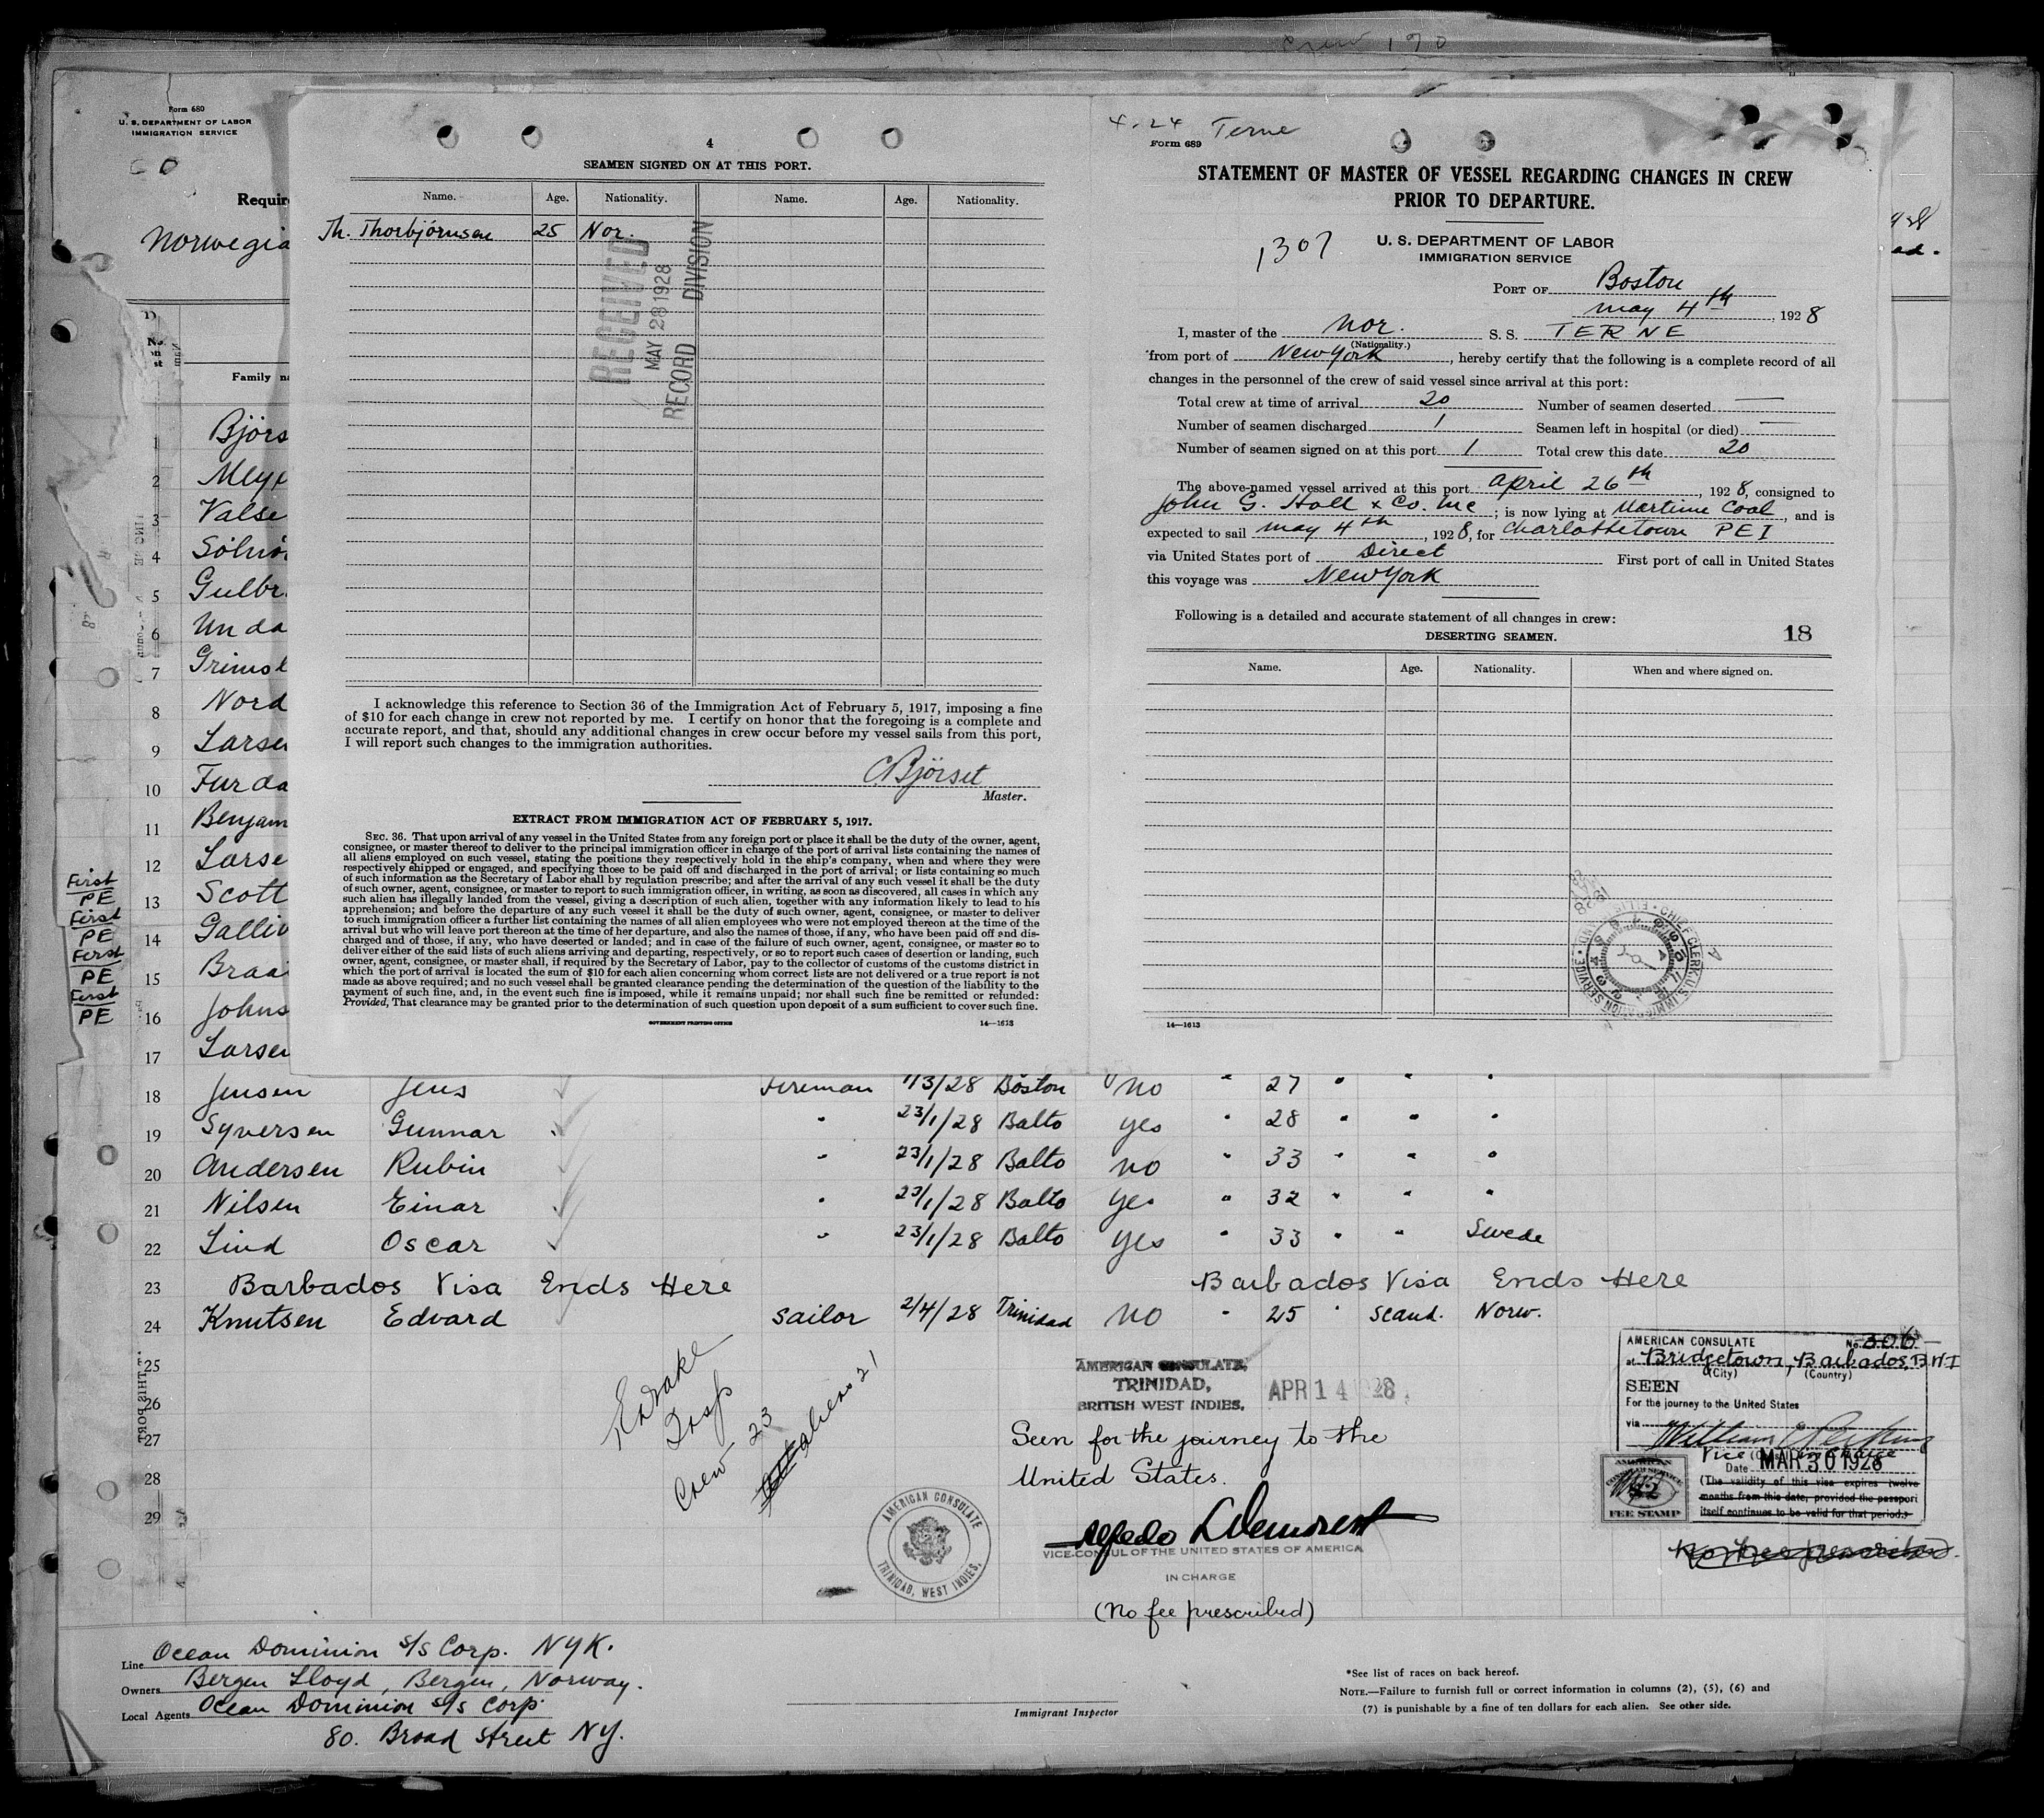 Crew 190
Form 680
U. S. DEPARTMENT OF LABOR
IMMIGRATION SERVICE
Require
Norwegia
Family na
1 Björs
2 Meye
3 Valse
4 Sölnö
5 Gulbr
6 Unda
7 Grimsl
8 Nord
9 Larse
10 Furda
11 Benjam
12 Larse
First
PE
13 Scott
First
PE
14 Galliv
First
PE
15 Braa
First
PE
16 Johns
17 Larsen
4
SEAMEN SIGNED ON AT THIS PORT.
Name. Age. Nationality. Name. Age. Nationality.
Th. Thorbjörnsen 25 Nor.
RECEIVED
MAY 28 1928
RECORD DIVISION
I acknowledge this reference to Section 36 of the Immigration Act of February 5, 1917, imposing a fine
of $10 for each change in crew not reported by me. I certify on honor that the foregoing is a complete and
accurate report, and that, should any additional changes in crew occur before my vessel sails from this port,
I will report such changes to the immigration authorities.
C Björset
Master.
EXTRACT FROM IMMIGRATION ACT OF FEBRUARY 5, 1917.
SEC. 36. That upon arrival of any vessel in the United States from any foreign port or place it shall be the duty of the owner, agent,
consignee, or master thereof to deliver to the principal immigration officer in charge of the port of arrival lists containing the names of
all aliens employed on such vessel, stating the positions they respectively hold in the ship's company, when and where they were
respectively shipped or engaged, and specifying those to be paid off and discharged in the port of arrival; or lists containing so much
of such information as the Secretary of Labor shall by regulation prescribe; and after the arrival of any such vessel it shall be the duty
of such owner, agent, consignee, or master to report to such immigration officer, in writing, as soon as discovered, all cases in which any
such alien has illegally landed from the vessel, giving a description of such alien, together with any information likely to lead to his
apprehension; and before the departure of any such vessel it shall be the duty of such owner, agent, consignee, or master to deliver
to such immigration officer a further list containing the names of all alien employees who were not employed thereon at the time of the
arrival but who will leave port thereon at the time of her departure, and also the names of those, if any, who have been paid off and dis-
charged and of those, if any, who have deserted or landed; and in case of the failure of such owner, agent, consignee, or master so to
deliver either of the said lists of such aliens arriving and departing, respectively, or so to report such cases of desertion or landing, such
owner, agent, consignee, or master shall, if required by the Secretary of Labor, pay to the collector of customs of the customs district in
which the port of arrival is located the sum of $10 for each alien concerning whom correct lists are not delivered or a true report is not
made as above required; and no such vessel shall be granted clearance pending the determination of the question of the liability to the
payment of such fine, and, in the event such fine is imposed, while it remains unpaid; nor shall such fine be remitted or refunded:
Provided, That clearance may be granted prior to the determination of such question upon deposit of a sum sufficient to cover such fine.
GOVERNMENT PRINTING OFFICE 14—1613
4-24 Terne
Form 689
STATEMENT OF MASTER OF VESSEL REGARDING CHANGES IN CREW
PRIOR TO DEPARTURE.
1307
U. S. DEPARTMENT OF LABOR
IMMIGRATION SERVICE
PORT OF Boston
May 4th, 1928
I, master of the Nor. S. S. TERNE
(Nationality.)
from port of New York, hereby certify that the following is a complete record of all
changes in the personnel of the crew of said vessel since arrival at this port:
Total crew at time of arrival 20 Number of seamen deserted —
Number of seamen discharged 1 Seamen left in hospital (or died) —
Number of seamen signed on at this port 1 Total crew this date 20
The above-named vessel arrived at this port April 26th, 1928, consigned to
John G. Hall & Co. Inc; is now lying at Martime Coal, and is
expected to sail May 4th, 1928, for Charlottetown PEI
via United States port of Direct First port of call in United States
this voyage was New York
Following is a detailed and accurate statement of all changes in crew:
DESERTING SEAMEN. 18
Name. Age. Nationality. When and where signed on.
CHIEF CLERK U.S. IMMIGRATION SERVICE
14—1613
18 Jensen Jens Fireman 1/3/28 Boston no " 27 " " "
19 Syversen Gunnar " 23/1/28 Balto yes " 28 " " "
20 Andersen Rubin " 23/1/28 Balto no " 33 " " "
21 Nilsen Einar " 23/1/28 Balto yes " 32 " " "
22 Lind Oscar " 23/1/28 Balto yes " 33 " " Swede
23 Barbados Visa Ends Here Barbados Visa Ends Here
24 Knutsen Edvard sailor 2/4/28 Trinidad no " 25 " Scand. Norw.
25
26
27
28
29
THIS PORT
Drake
Insp
Crew 23
aliens 21
AMERICAN CONSULATE,
TRINIDAD,
BRITISH WEST INDIES.
APR 14 1928
Seen for the journey to the
United States.
VICE-CONSUL OF THE UNITED STATES OF AMERICA
IN CHARGE
(No fee prescribed)
AMERICAN CONSULATE
TRINIDAD, WEST INDIES.
AMERICAN CONSULATE No. 306
at Bridgetown, Barbados, B W I
(City) (Country)
SEEN
For the journey to the United States
via
William
Vice
Date MAR 30 1928
(The validity of this visa expires twelve
months from this date, provided the passport
itself continues to be valid for that period.)
AMERICAN
CONSULAR SERVICE
$2
FEE STAMP
No fee prescribed
Line Ocean Dominion S/S Corp. NYK.
Owners Bergen Lloyd, Bergen, Norway.
Local Agents Ocean Dominion S/S Corp
80. Broad Street NY.
Immigrant Inspector
*See list of races on back hereof.
NOTE.—Failure to furnish full or correct information in columns (2), (5), (6) and
(7) is punishable by a fine of ten dollars for each alien. See other side.